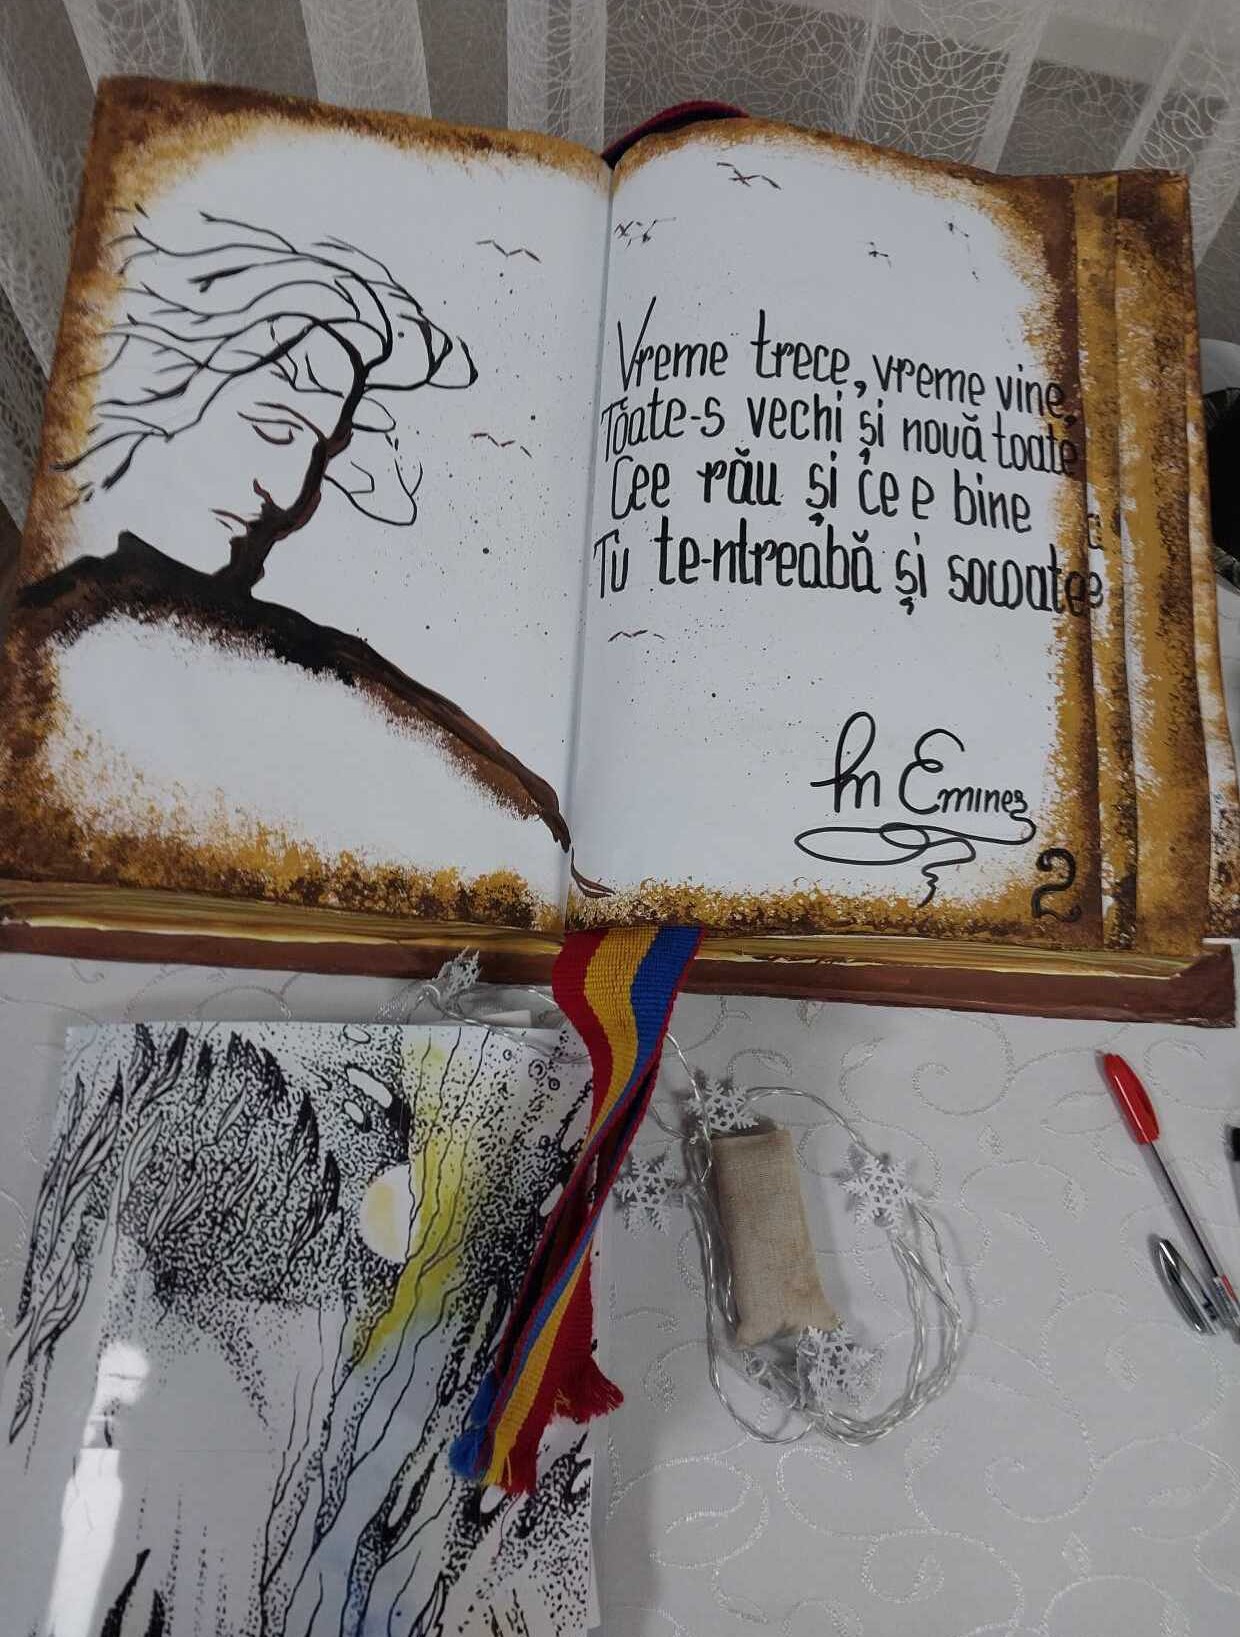 Vreme trece, vreme vine,
Toate-s vechi și nouă toate
Cee rău și ce e bine
Tu te-ntreabă și socoate
M Emines
2